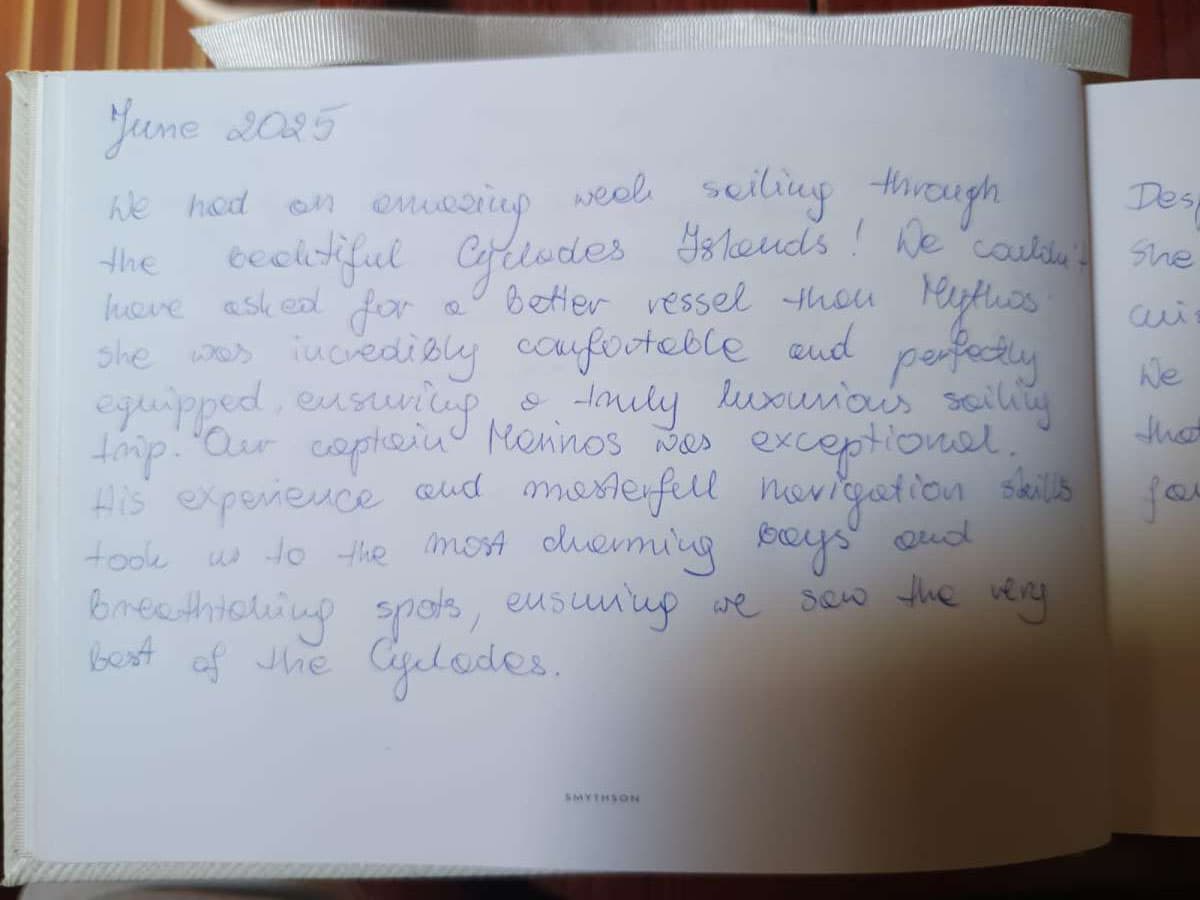 June 2025
We had an amazing week sailing through
the beautiful Cyclades Islands! We couldn't
have asked for a better vessel than Mythos
she was incredibly comfortable and perfectly
equipped, ensuring a truly luxurious sailing
trip. Our captain Marinos was exceptional.
His experience and masterfull navigation skills
took us to the most charming bays and
breathtaking spots, ensuring we saw the very
best of the Cyclades.
SMYTHSON
She
We